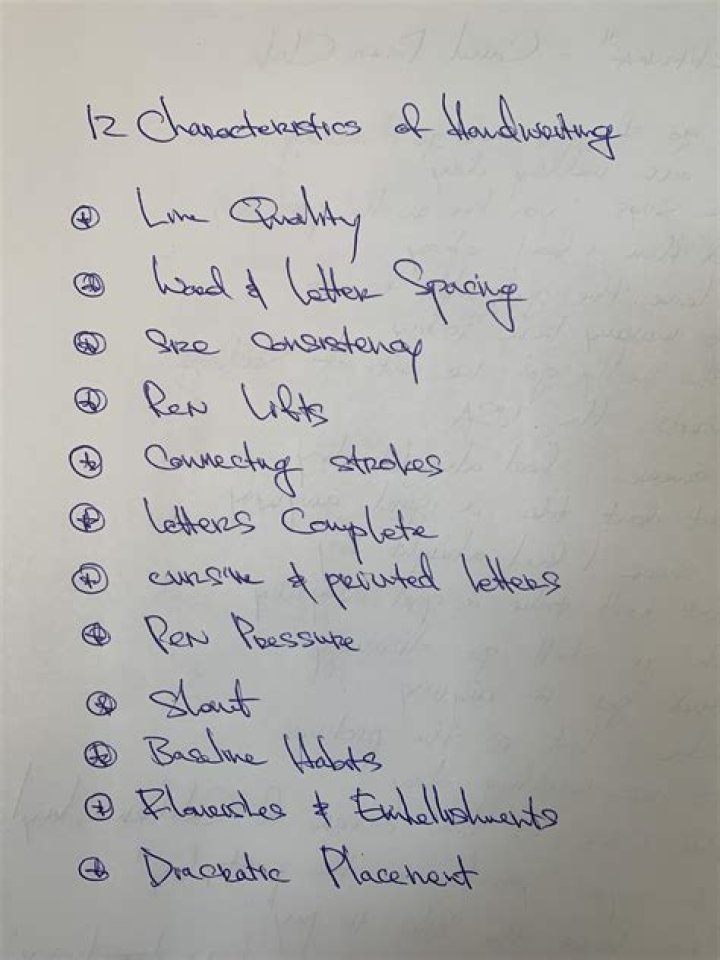 12 Characteristics of Handwriting
Line Quality
Word & Letter Spacing
Size consistency
Pen Lifts
Connecting strokes
Letters Complete
cursive & printed letters
Pen Pressure
Slant
Baseline Habits
Flourishes & Embellishments
Diacratic Placement